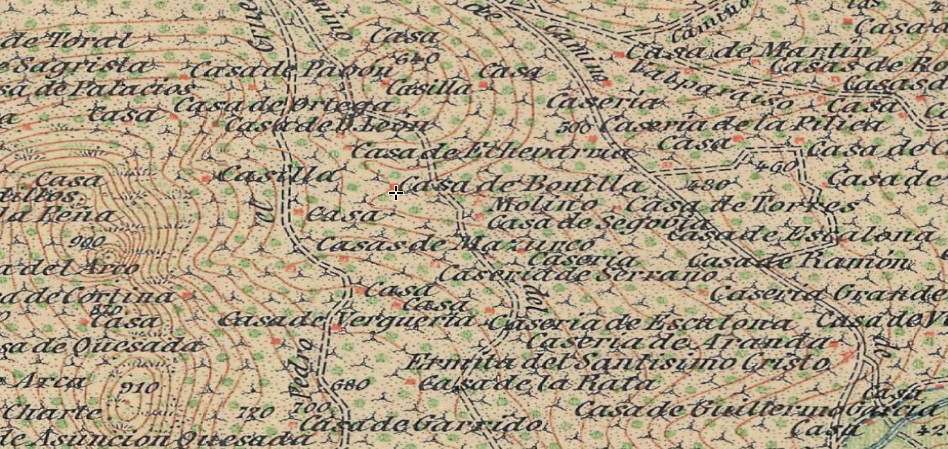 Camino
Casa
de Toral
Camino
Casa de Martin
640
Sagrista
Casa de Pabón
Casa
Valparaiso
Casas de
sa de Palacios
Casilla
Casa de Ortega
Caseria
Casa
Casa
Casa de D. León
500
Caseria de la Pilica
Casa de Echevarria
Casa
Casa de
460
Casilla
Casa
Casa de Bonilla
480
Casa de
la Peña
Molino
Casa de Torres
Casa
Casa de Segovia
Casa de Escalona
900
Casas de Mazurco
Caseria
Casa de Ramón
a del Arco
Caseria de Serrano
Casa
del
Caseria Grande
a de Cortina
Casa
Casa
Casa de Vergueria
Caseria de Escalona
sa de Quesada
Caseria de Aranda
de
Ermita del Santisimo Cristo
Arca
910
Pedro
680
Casa de la Rata
Casa
Charte
720
700
Casa de Guillermo Garcia
Casa de Garrido
Casa
de Asunción Quesada